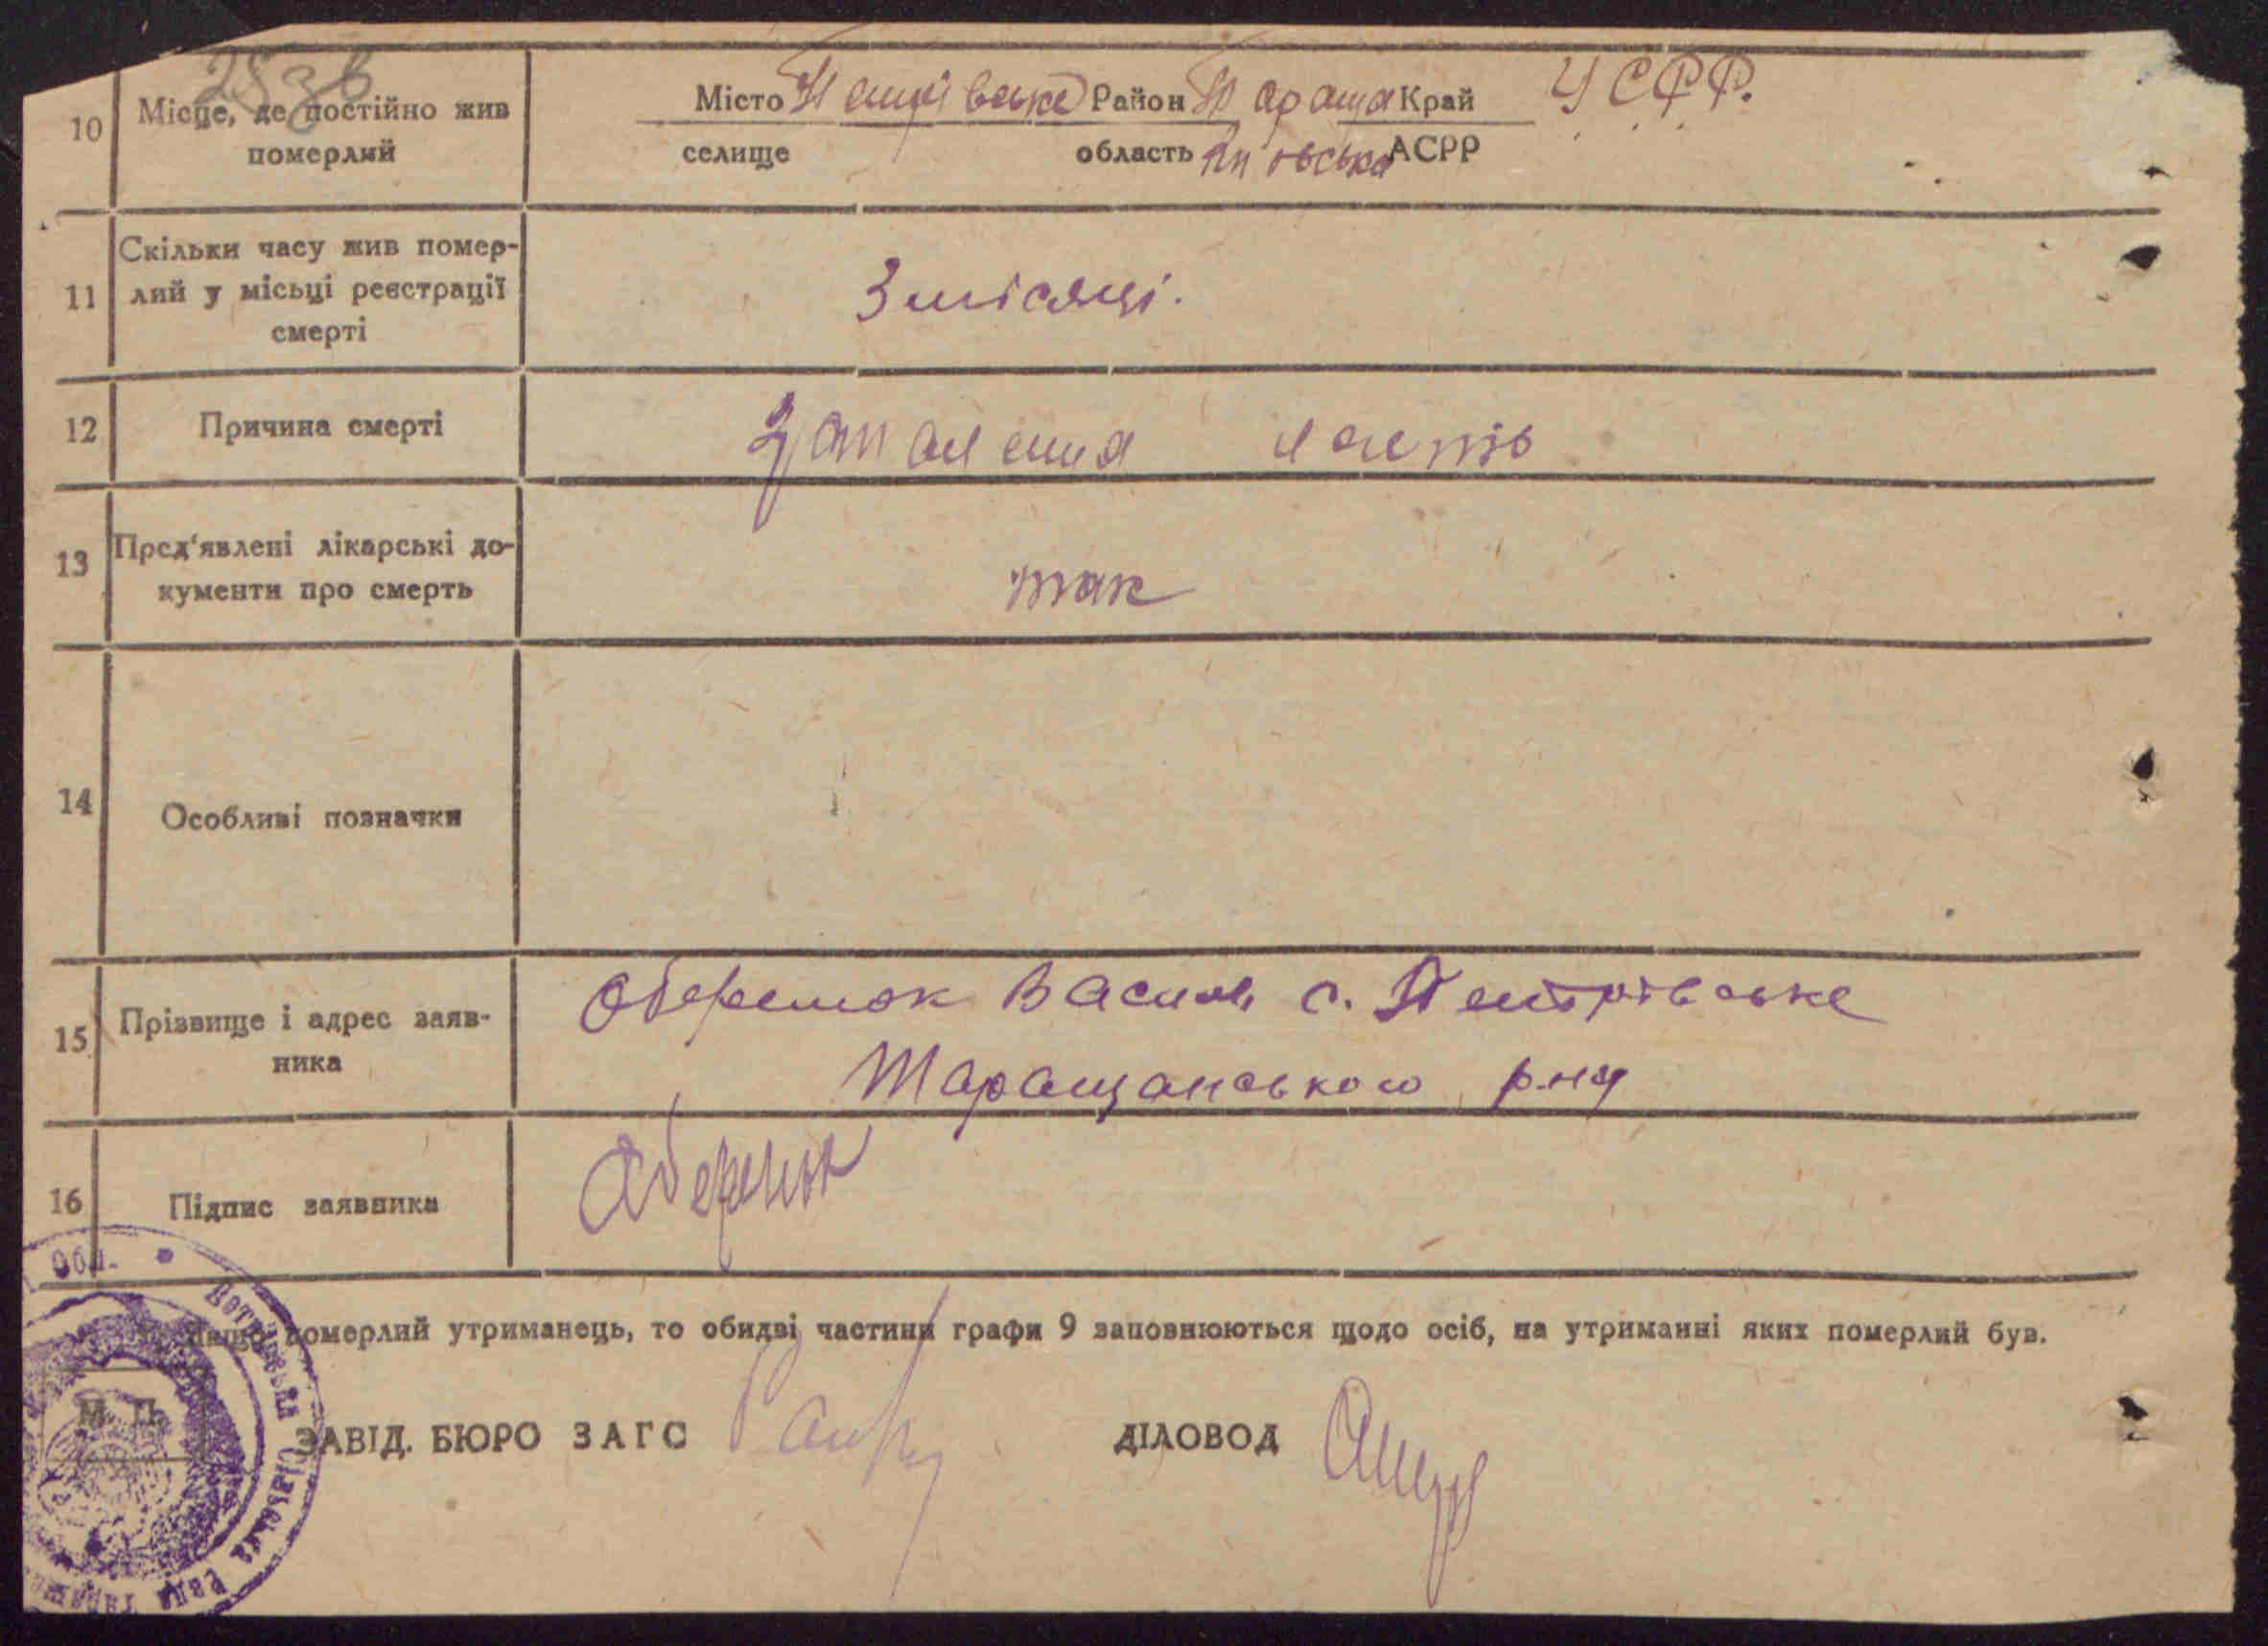 10 Місце, де постійно жив померлий
Місто Петрівське Район Тараща Край УСРР.
селище область Київська АСРР
11 Скільки часу жив помер-
лий у місьці реєстрації
смерті
3 місяці.
12 Причина смерті
Запалення легнів
13 Пред'явлені лікарські до-
кументи про смерть
так
14 Особливі позначки
15 Прізвище і адрес заяв-
ника
Оберемок Василь с. Петрівське
Таращанського р-ну
16 Підпис заявника
Оберемок
Обл.
Петрівська Сільська Рада
Якщо померлий утриманець, то обидві частини графи 9 заповнюються щодо осіб, на утриманні яких померлий був.
М. П.
ЗАВІД. БЮРО ЗАГС
ДІЛОВОД